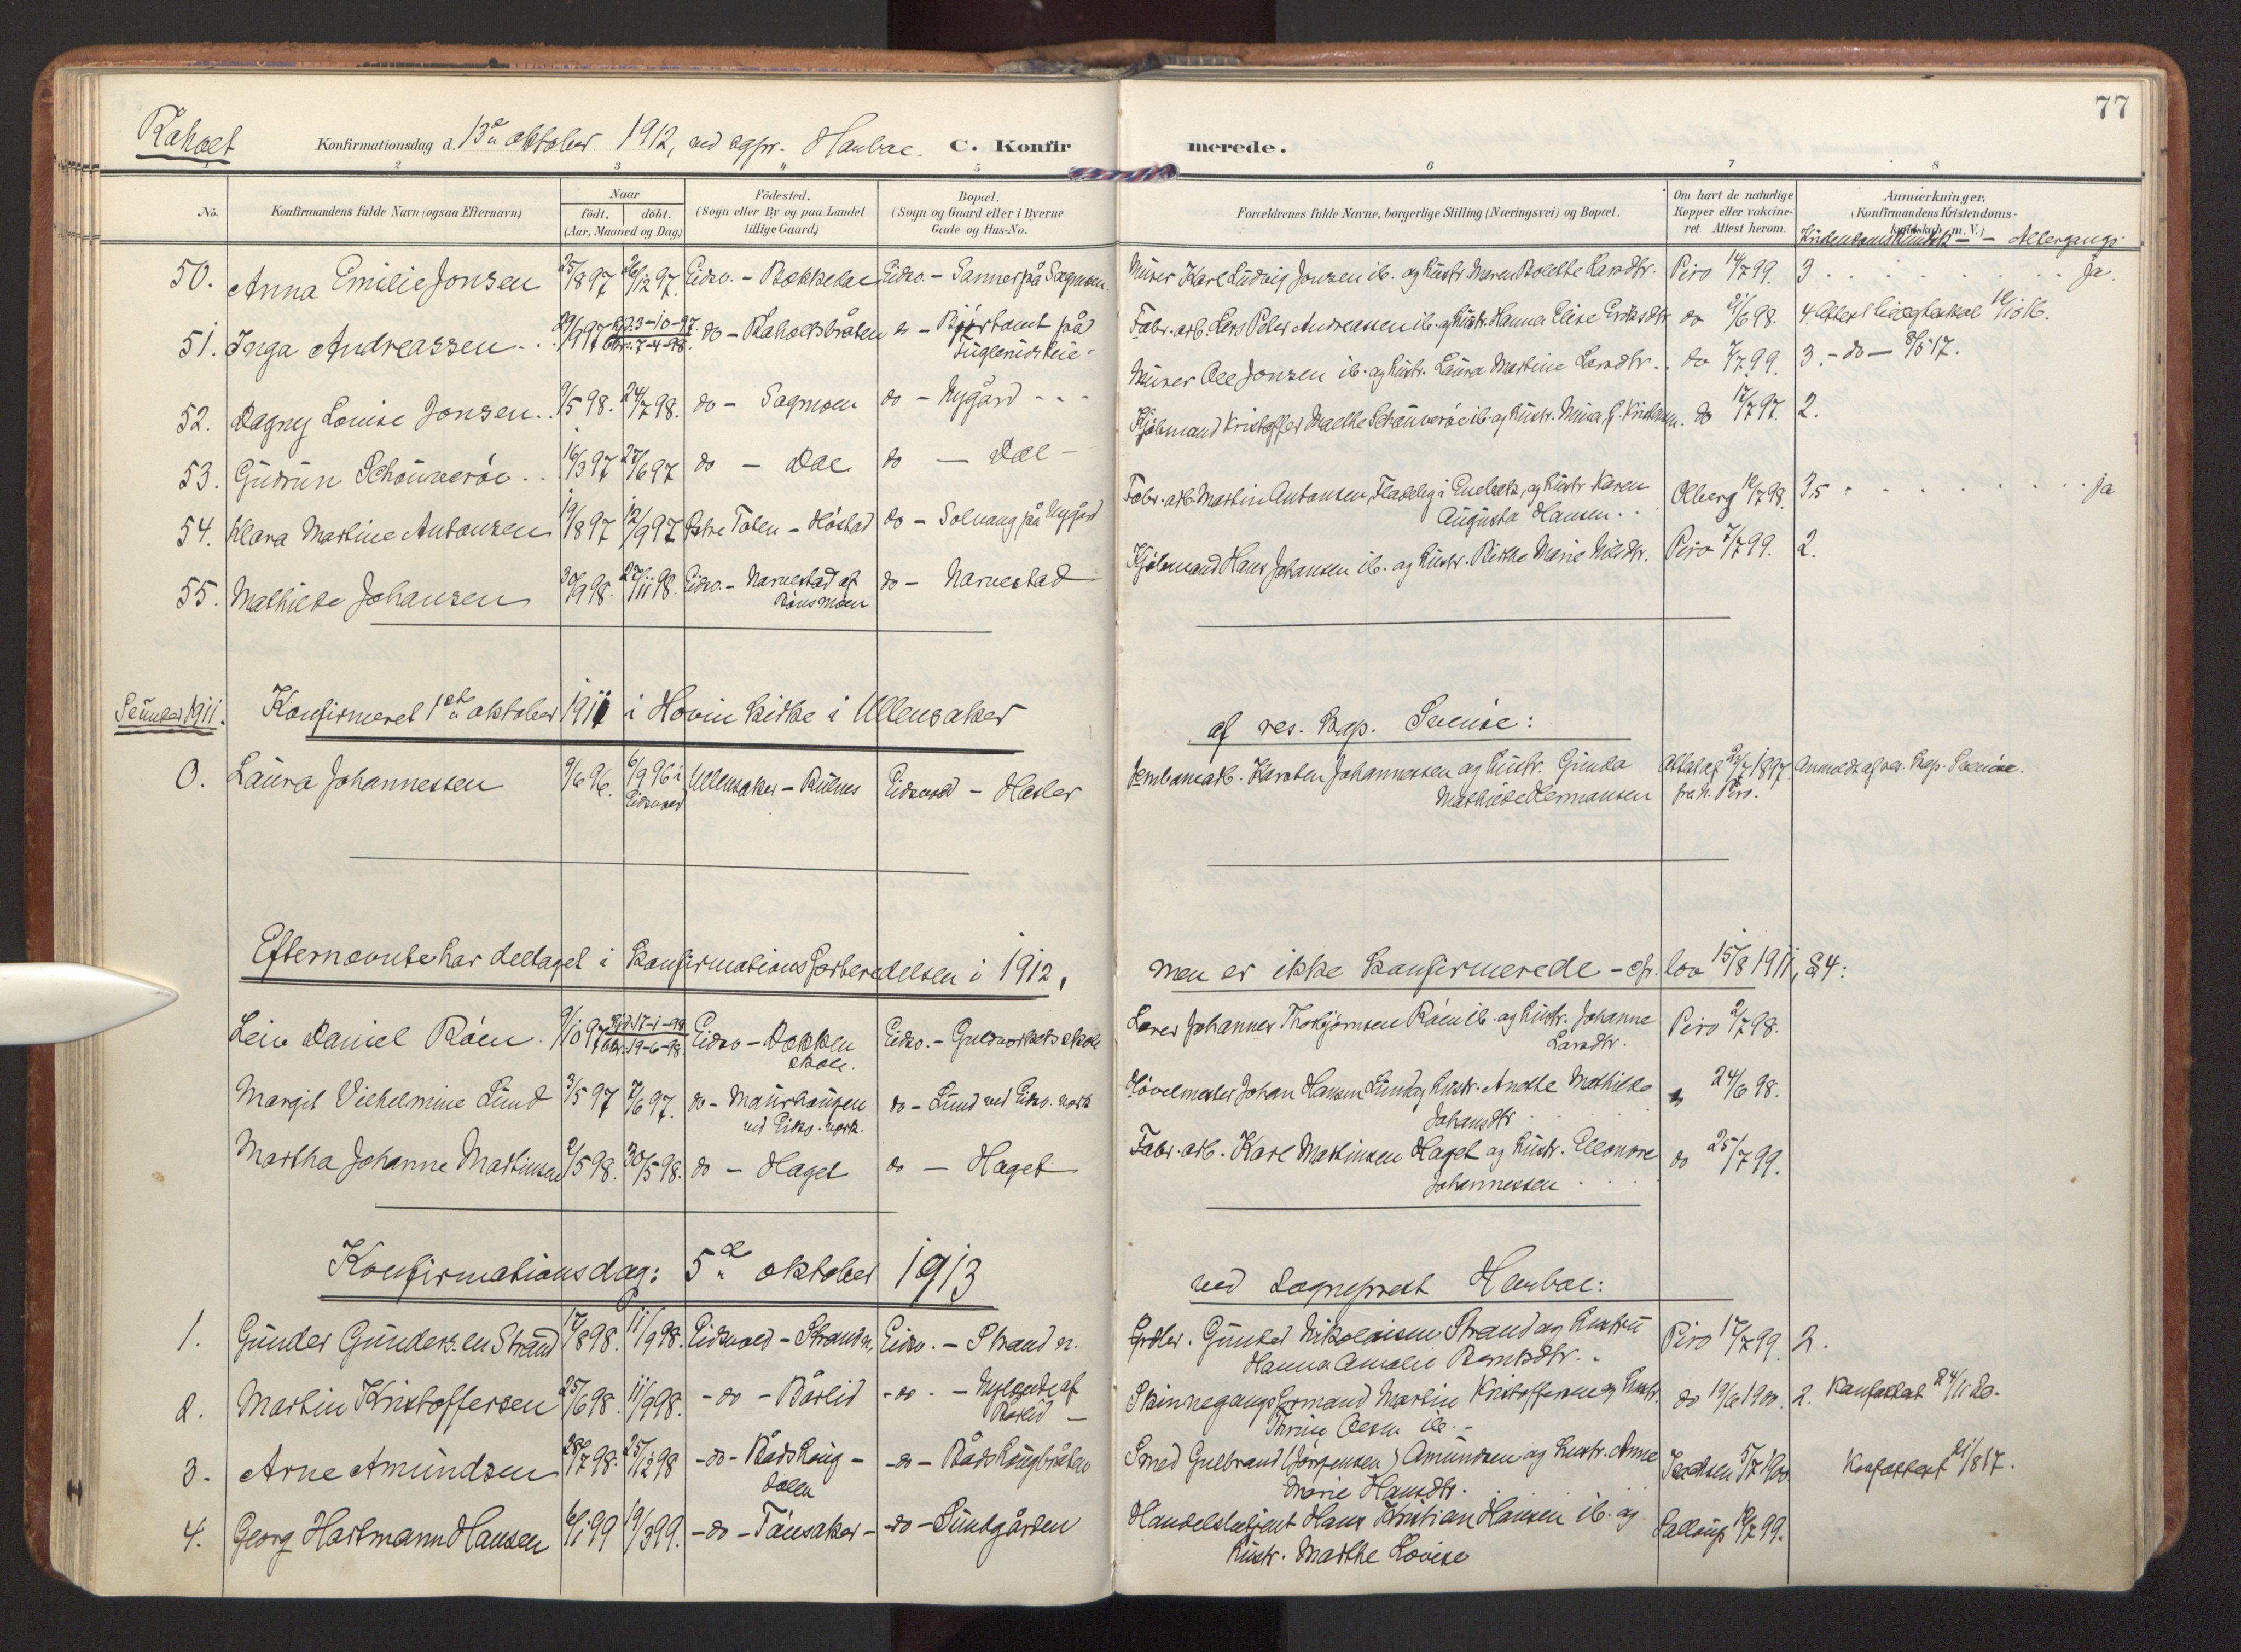 77
Råholt Konfirmationsdag d. 13de oktober 1912, ved sgpr. Haubae. C. Konfir merede.
1 2 3 4 5 6 7 8
No. Konfirmandens fulde Navn (ogsaa Efternavn) Naar födt. döbt. (Aar, Maaned og Dag) Födested. (Sogn eller By og paa Landet tillige Gaard) Bopæl. (Sogn og Gaard eller i Byerne Gade og Hus-No. Forældrenes fulde Navne, borgerlige Stilling (Næringsvei) og Bopæl. Om havt de naturlige Kopper eller vakcineret Attest herom. Anmærkninger. (Konfirmandens Kristendomskundskab m. V.)
50. Anna Emilie Jonsen 25/8 97 26/12 97. Eidsv. - Bekkedal Eidsv. - Sanner på Sagmoen Murer Karl Ludvig Jonsen ib. og hustr. Maren Bolette Larsdtr. Piro 14/7 99. 3 ja.
51. Inga Andreassen 29/9 97 Hjd. 3-10-97. 7-4-98. do - Råholtbråten do - på Fabr. arb. Lars Peter Andreassen ib. og hustr. Hanna Elise Eriksdtr. do 21/6 98. 4. Attest
52. Dagny Louise Jonsen 9/5 98. 24/7 98. do - Sagmoen do - Nygård Murer Ole Jonsen ib. og hustr. Laura Martine Larsdtr. do 7/7 99. 3. - do - 8/5 17.
53. Gudrun Schouverøe 16/3 97 27/6 97 do - Dal do - Dal Kjøbmand Kristoffer Malthe Schouverøe ib. og hustr. Mina do 17/7 97. 2.
54. Klara Martine Antonsen 19/8 97 12/9 97 Østre Toten - Høstad do - Solvang på Nygård Fabr. arb. Martin Antonsen, og hustr. Karen
Augusta Hansen Olberg 12/7 98. 3,5 ja
55. Mathilde Johansen 30/9 98. 27/11 98. Eidsv. - Narvestad af
Bønsmoen do - Narvestad Kjøbmand Hans Johansen ib. og hustr. Birthe Marie Nilsdtr. Piro 7/7 99. 2.
1911. Konfirmeret 1ste oktober 1911 i Hovin kirke i Ullensaker af res. kap. Svenøe:
0. Laura Johannessen 9/6 96. 6/9 96 i
Eidsvold Ullensaker - Eidsvold - Hasler Jernbanearb. Karsten Johannessen og hustr. Gunda
Mathilde Hermansen Attest af 1897
fra h. Piro. Anmeldt af res. kap. Svenøe.
Efternævnte har deltaget i konfirmationsforberedelsen i 1912, men er ikke konfirmerede - cfr. lov 15/8 1911, § 4:
Leiv Daniel Røen 9/10 97 Hjd. 17-1-98 19-6-98. Eidsv - Dokken
skole. Eidsv. - Guldverkets skole Lærer Johannes Thorbjørnsen Røen ib. og hustr. Johanne
Larsdtr. Piro 2/7 98.
Margit Vilhelmine Lund 3/5 97 7/6 97. do - Maurhaugen
ved Eidsv. verk. do - Lund ved Eidsv. verk Høvelmester Johan Hansen Lund og hustr. Anette Mathilde
Johansdtr do 24/6 98.
Martha Johanne Martinsen 2/5 98. 30/5 98. do - Haget do - Haget Fabr. arb. Karl Martinsen Haget og hustr. Elleonore
Johannessen do 25/7 99.
Konfirmationsdag: 5te oktober 1913 ved sogneprest Haubae:
1. Gunder Gundersen Strand 17/8 98. 11/9 98. Eidsvold - Strand n. Eidsv. - Strand n. Grdbr. Gunder Nikolaisen Strand og hustru
Hanna Amalie Berntsdtr. Piro 17/7 99. 2.
2. Martin Kristoffersen 25/6 98. 11/9 98. - do - Bårlid - do - Nylende af
Bårlid Skinnegangsformand Martin Kristoffersen og hustr.
Thrine Olesen ib. do 19/6 1900. 2. Konfattest 24/11 20.
3. Arne Amundsen 28/7 98. 25/12 98 - do - Bådshaug-
dalen - do - Bådshaugbråten Smed Gulbrand (Jørgensen) Amundsen og hustr. Anne
Marie Hansdtr. 5/7 1900 Konfattest 21/8 17.
4. Georg Hartmann Hansen 6/1 99 19/3 99. - do - Tønsaker - do - Sundgården Handelsbetjent Hans Kristian Hansen ib. og
hustr. Marthe Lovise 99.